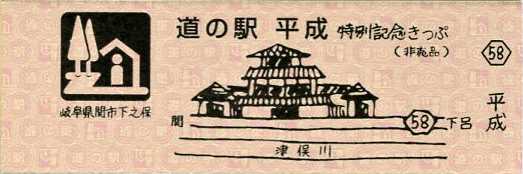 道の駅 平成 特別記念きっぷ
(非売品)
58
岐阜県関市下之保
平成
関
58 下呂
津保川